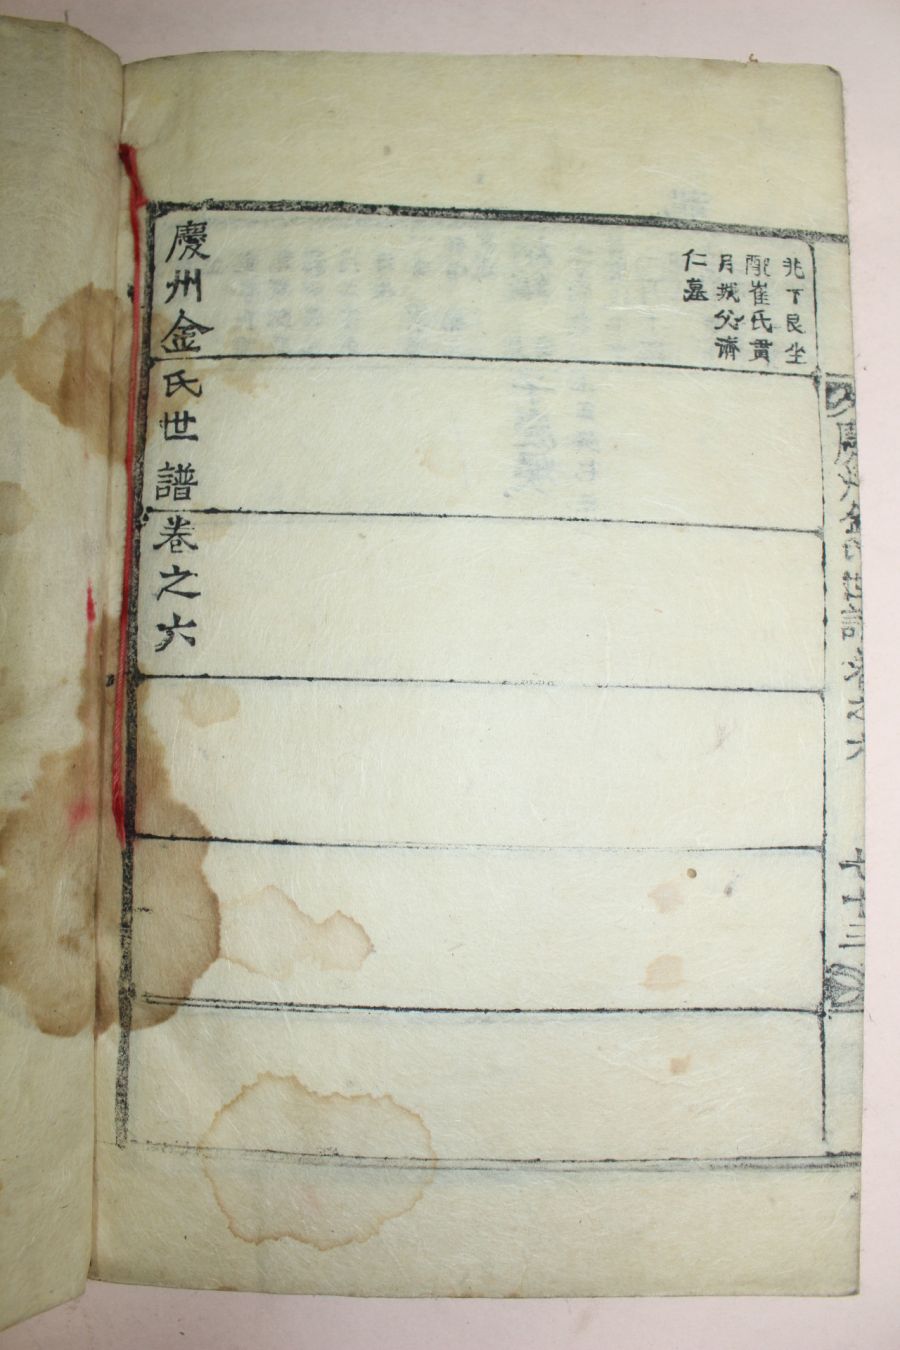 兆下艮坐
配崔氏貫
月城父濟
仁墓
慶州金氏世譜卷之六
慶州金氏世譜卷之六
七十三